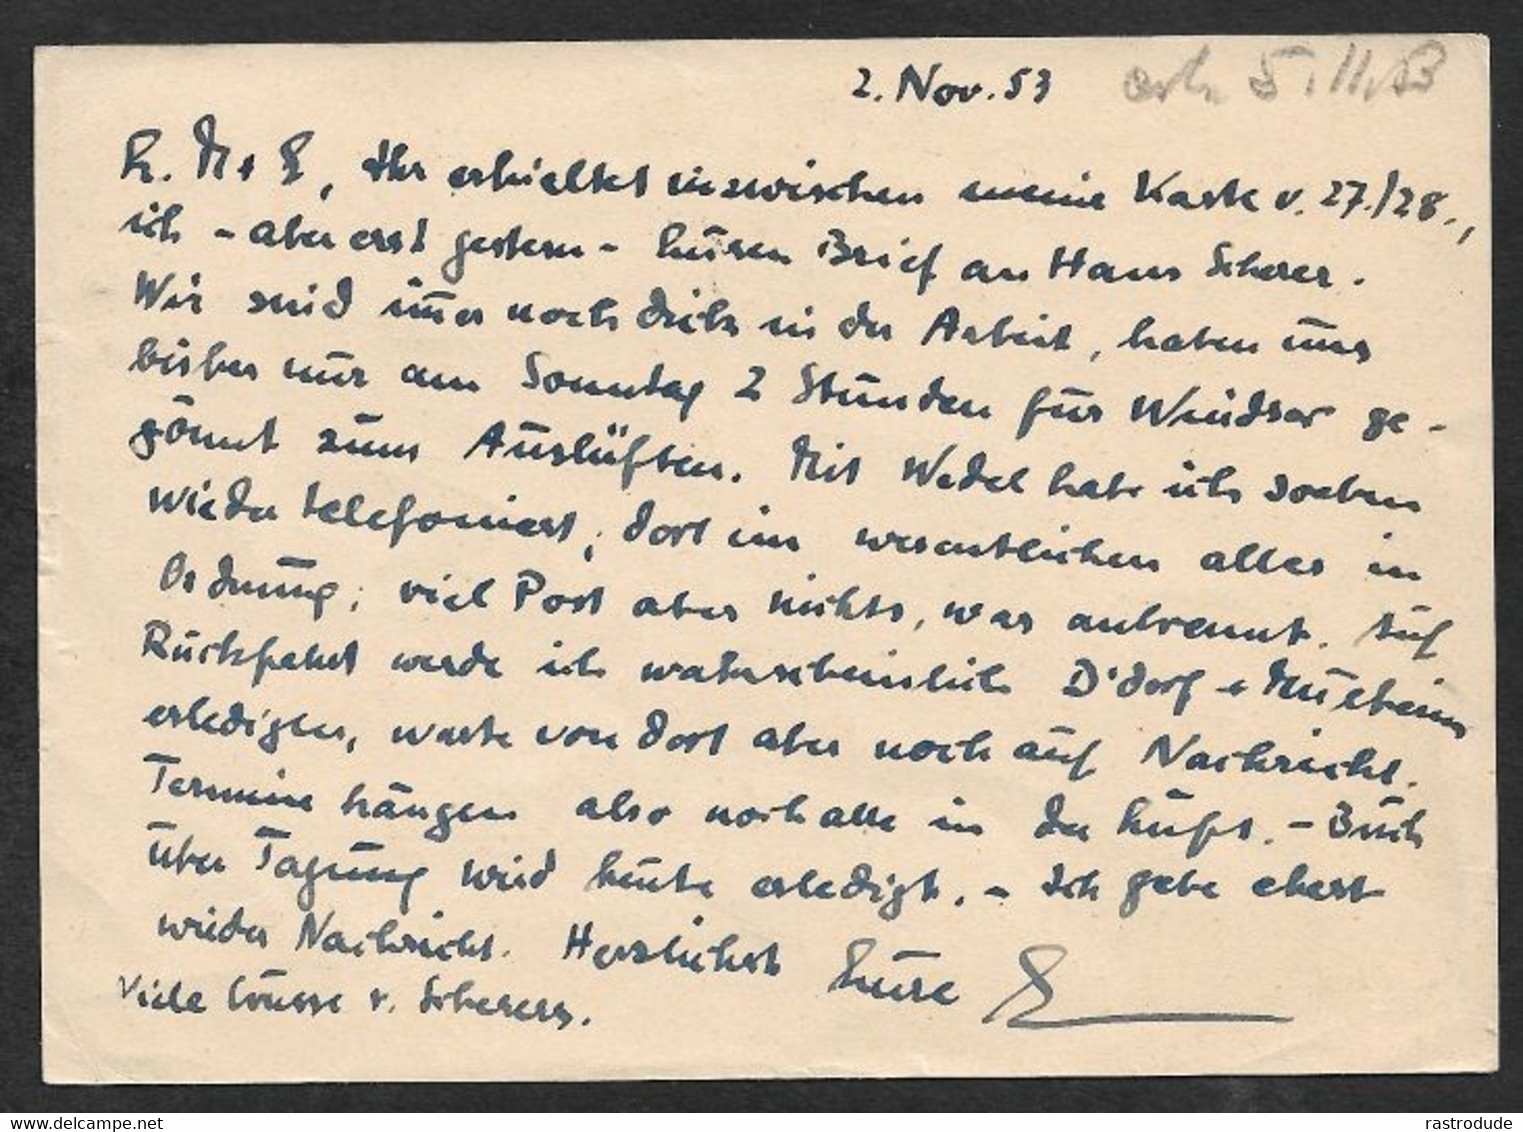 2. Nov. 53 erh. 5.11.53
L. M + E, Ihr erhieltet inzwischen meine Karte v. 27./28.,
ich - aber erst gestern - Euren Brief an Hans Scherer.
Wir sind im̅er noch dick in der Arbeit, haben uns
bisher nur am Sonntag 2 Stunden für Windsor ge-
gönnt zum Auslüften. Mit Wedel habe ich soeben
wieder telefoniert, dort im wesentlichen alles in
Ordnung, viel Post aber nichts, was anbrennt. Auf
Rückfahrt werde ich wahrscheinlich D'dorf + Mülheim
erledigen, warte von dort aber noch auf Nachricht.
Termine hängen also noch alle in der Luft. - Buch
über Tagung wird heute erledigt. - Ich gebe ehest
wieder Nachricht. Herzlichst Eure E
Viele Grüsse v. Scherers.
www.delcampe.net
rastrodude